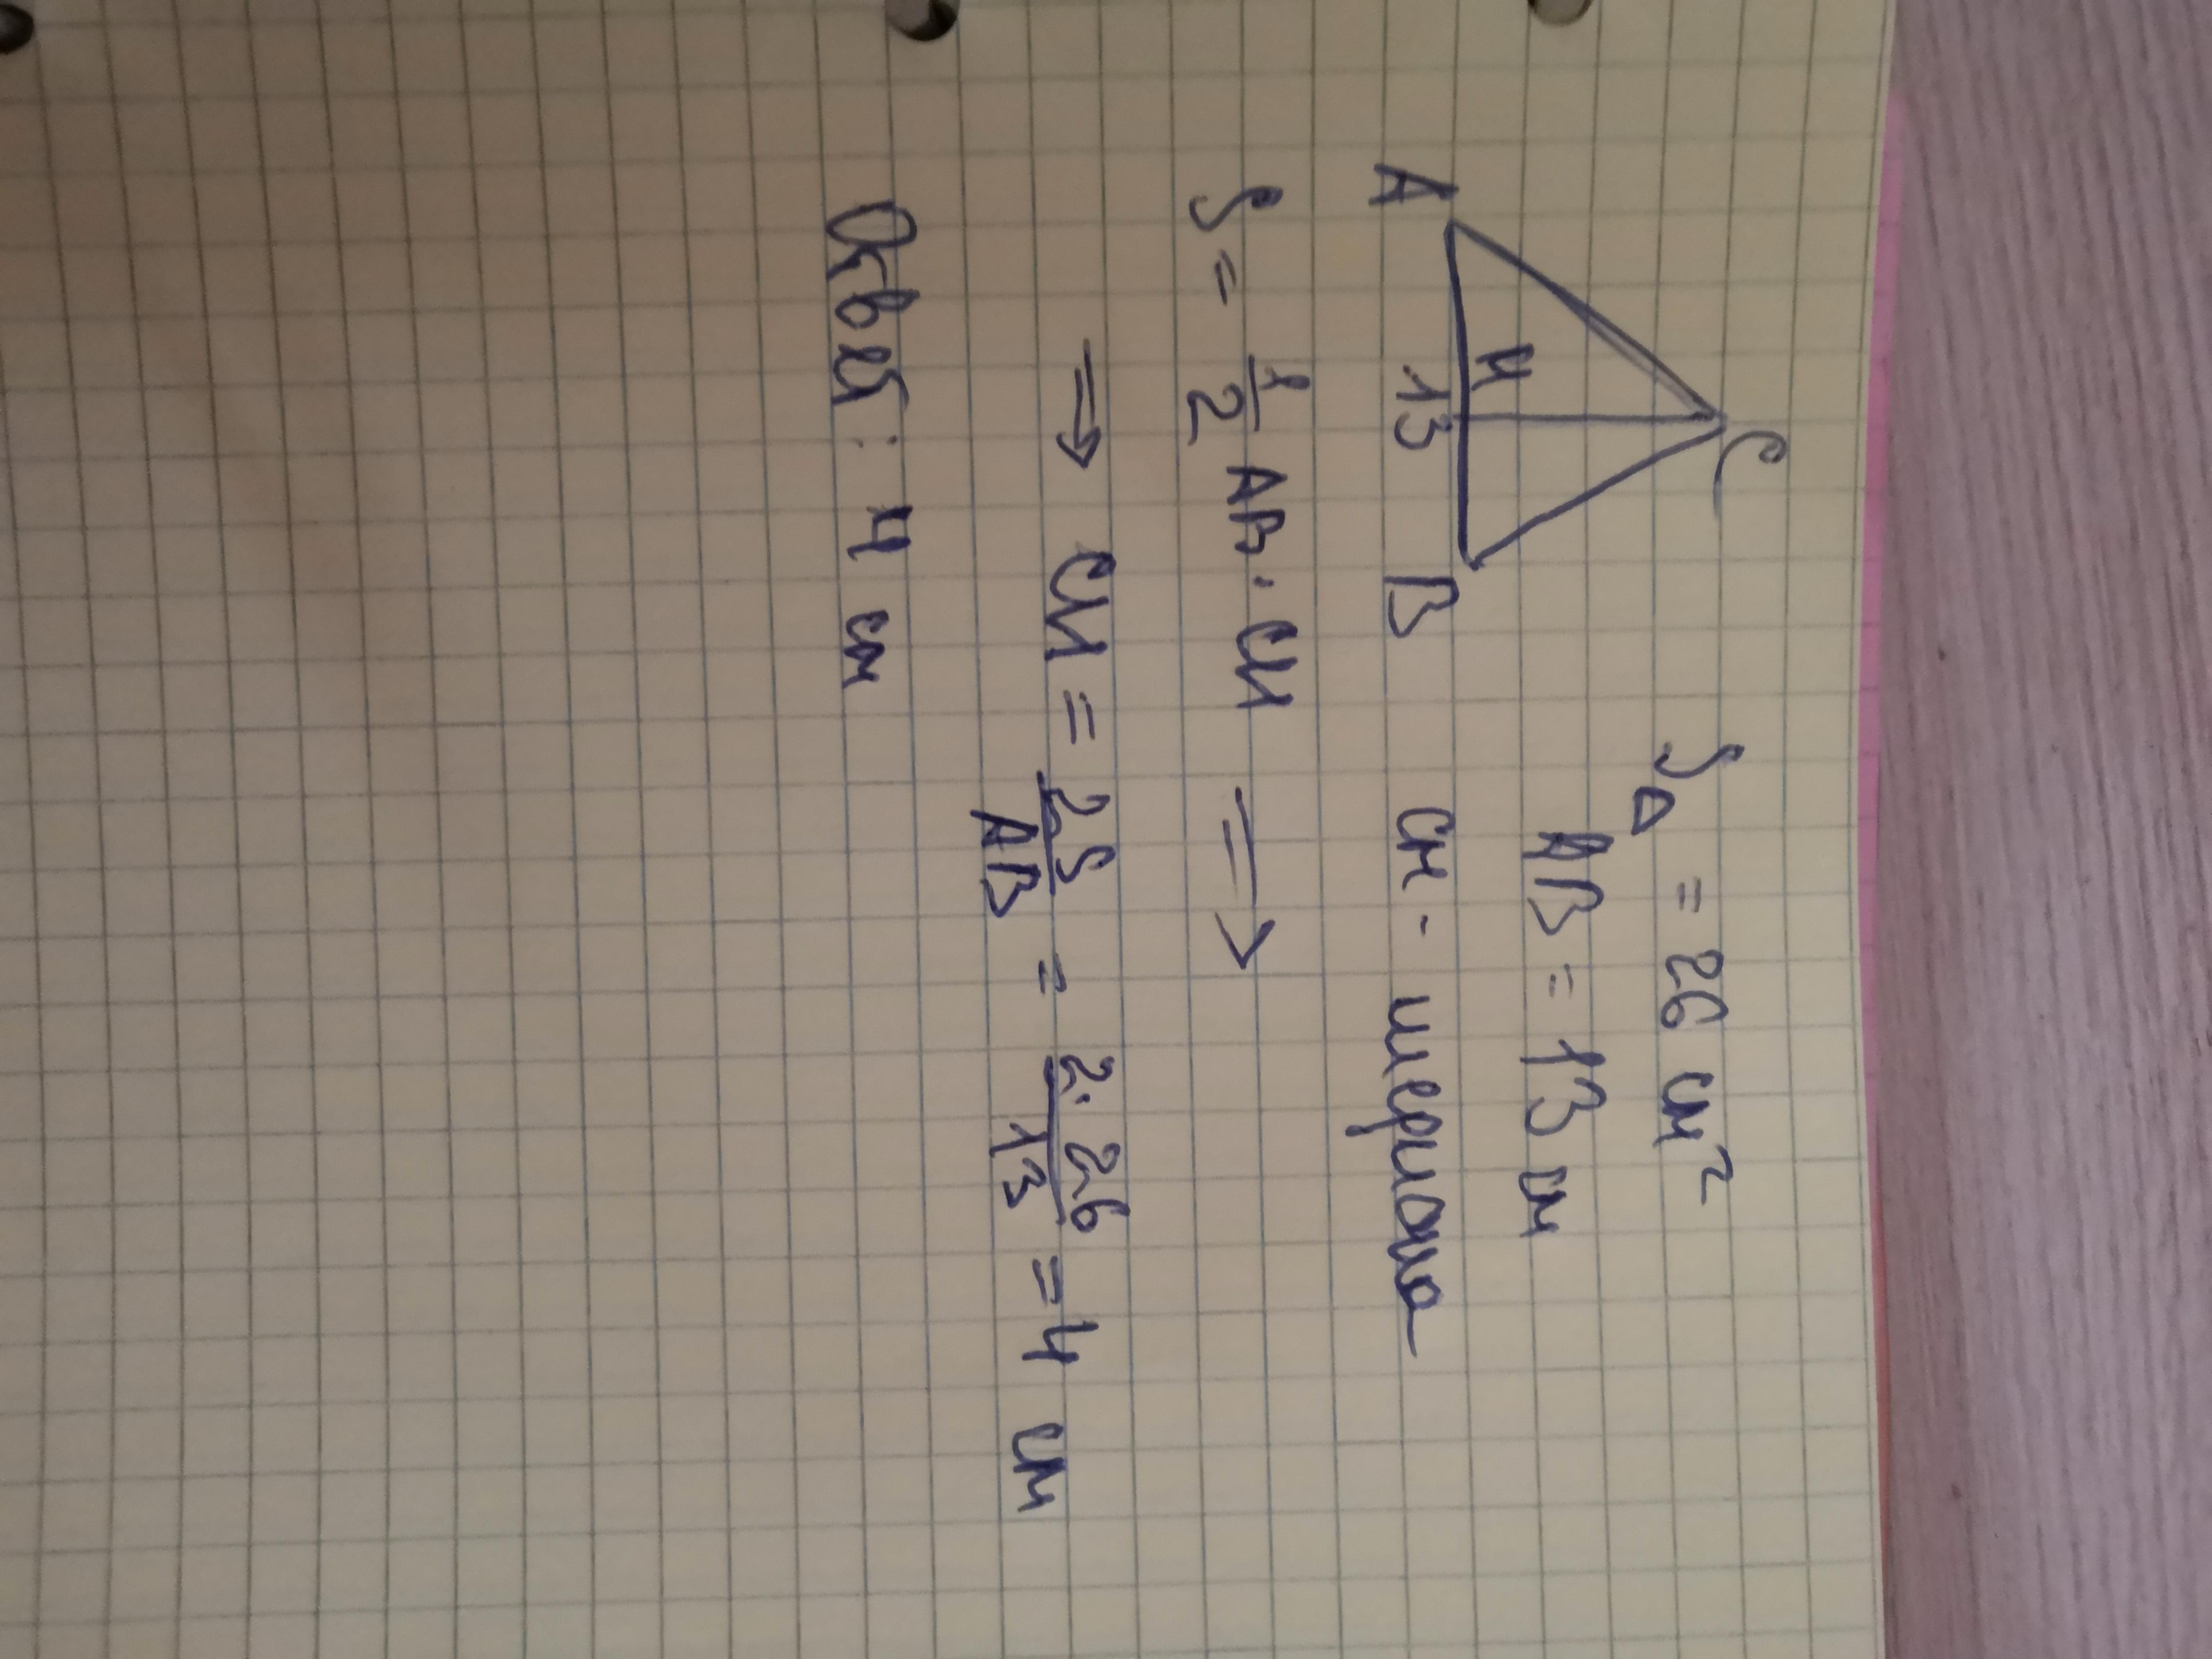 C
S△ = 26 см²
AB = 13 см
H
A 13 B
CH - медиана
S = 1/2 AB · CH ⟹
⟹ CH = 2S/AB = 2·26/13 = 4 см
Ответ: 4 см